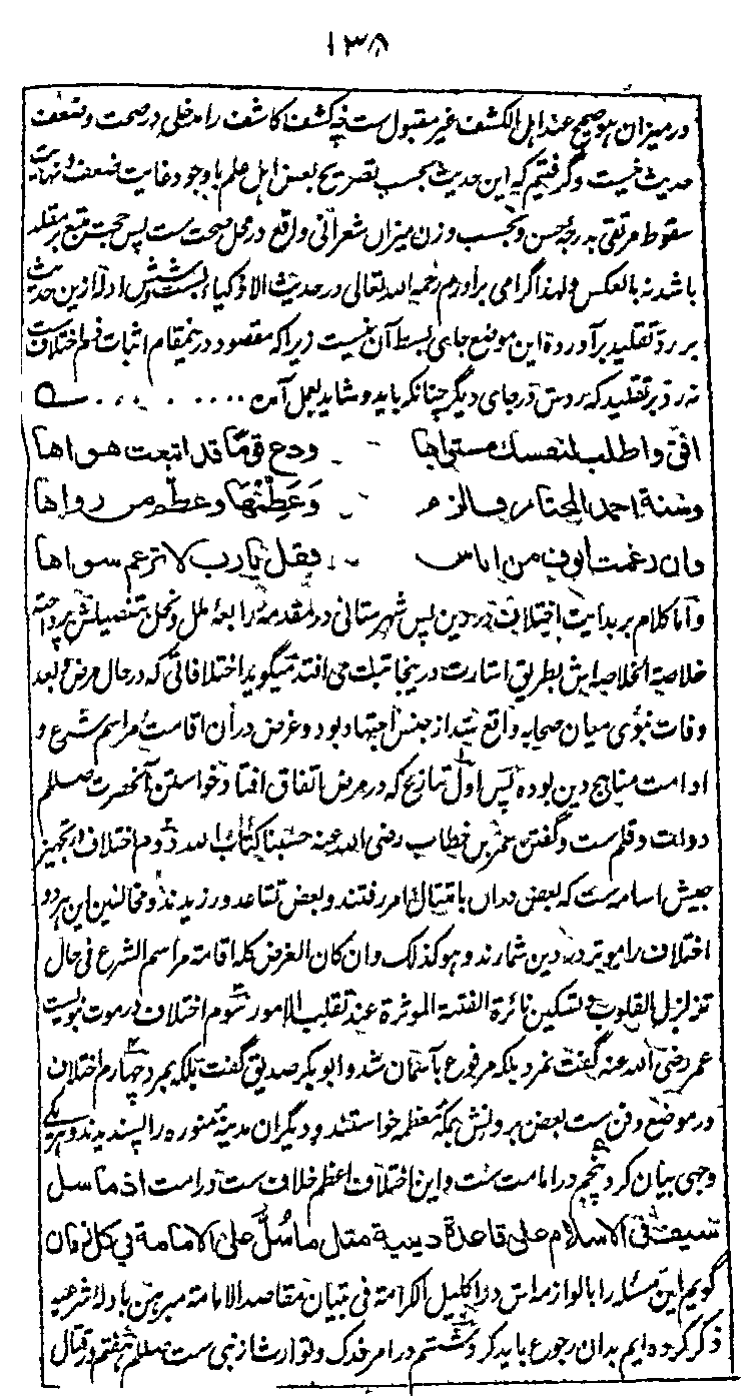 ۱۳۸
در میزان هو صحیح عند اهل الکشف غیر مقبول ست چه کشف کاشف را مدخلی در صحت و ضعف
حدیث نیست و گرفتیم که این حدیث بحسب تصریح بعض اهل علم با وجود غایت ضعف و نهایت
سقوط مرتقی بدرجهٔ حسن و بحسب وزن میزان شعرانی واقع در محل صحت ست پس حجت متبع بر مقلد
باشد نه بالعکس و لهذا گرامی برادرم رحمه الله تعالی در حدیث الاذکیاء بست و شش ادله ازین حدیث
بر رد تقلید برآورده این موضع جای بسط آن نیست زیرا که مقصود درینمقام اثبات ذم اختلاف ست
نه رد بر تقلید که ردش در جای دیگر چنانکه باید و شاید بعمل آمده
افق و اطلب لنفسک مستواها ودع قوما قد اتبعت هواها
وسنة احمد المختار فالزم وعظمها وعظم من رواها
وان رغمت انوف من اناس فقل یا رب لا ترغم سواها
و اما کلام بر بدایت اختلاف در دین پس شهرستانی در مقدمهٔ رابعهٔ ملل و نحل تفصیلش پرداخته
خلاصة الخلاصه اش بطریق اشارت درینجا ثبت می افتد میگوید اختلافاتی که در حال مرض و بعد
وفات نبوی میان صحابه واقع شد از جنس اجتهاد بود و غرض در آن اقامت مراسم شرع و
ادامت مناهج دین بوده پس اول تنازع که در مرض اتفاق افتاد خواستن آنحضرت صلعم
دوات و قلم ست و گفتن عمر بن خطاب رضی الله عنه حسبنا کتاب الله دوم اختلاف در تجهیز
جیش اسامه ست که بعض دران بامتثال امر رفتند و بعض تقاعد ورزیدند و مخالفین این هر دو
اختلاف را موثر در دین شمارند و هو کذلک وان کان الغرض کله اقامة مراسم الشرع فی حال
تزلزل القلوب و تسکین نائرة الفتنة الموثرة عند تقلب الامور سوم اختلاف در موت نبویست
عمر رضی الله عنه گفت نمرد بلکه مرفوع بآسمان شد و ابوبکر صدیق گفت بلکه بمرد چهارم اختلاف
در موضع دفن ست بعض بردنش بمکهٔ معظمه خواستند و دیگران مدینهٔ منوره را پسندیدند و هر یکی
وجهی بیان کرد پنجم در امامت ست و این اختلاف اعظم خلاف ست در امت اذ ما سل
سیف فی الاسلام علی قاعدة دینیة مثل ما سُلَّ علی الامامة فی کل زمان
گویم این مسئله را با لوازمه اش در اکلیل الکرامة فی تبیان مقاصد الامامة مبرهن با دلائل شرعیه
ذکر کرده ایم بدان رجوع باید کرد ششم در امر فدک و توارث از نبی ست صلعم هفتم در قتال